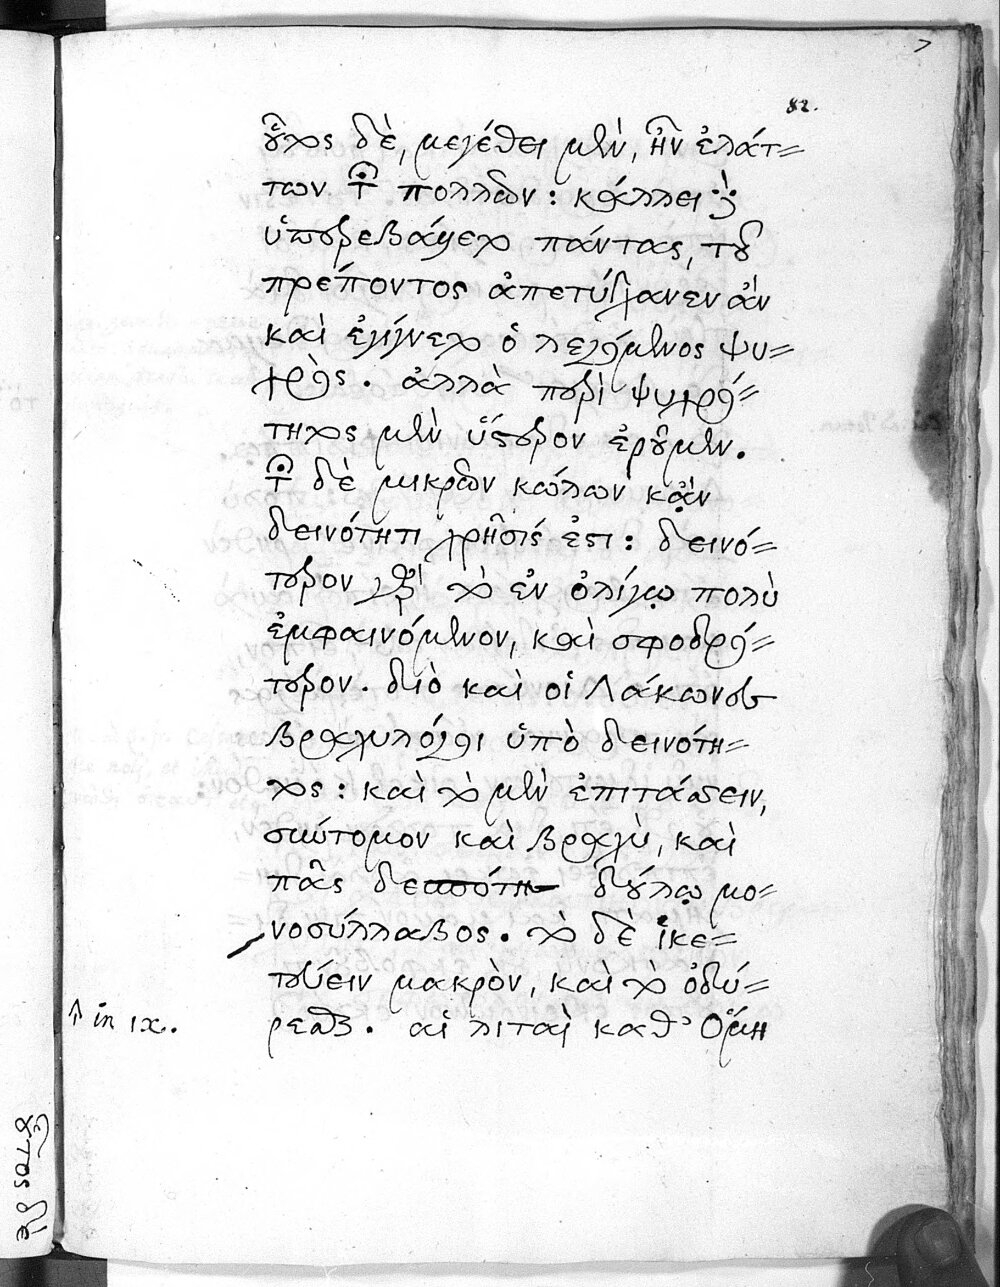 7
82.
οὗτος δὲ, μεγέθει μὲν, ἦν ἐλάτ=
των τῶν πολλῶν : κάλλει δὲ
ὑπερβεβληκὼς πάντας, τοῦ
πρέποντος ἀπετύγχανεν ἂν
καὶ ἐγίγνετο ὁ λεγόμενος ψυ=
χρὸς . ἀλλὰ περὶ ψυχρό=
τητος μὲν ὕστερον ἐροῦμεν.
τῶν δὲ μικρῶν κώλων κἀν
δεινότητι χρῆσίς ἐστι : δεινό=
τερον γὰρ τὸ ἐν ὀλίγῳ πολὺ
ἐμφαινόμενον, καὶ σφοδρό=
τερον . διὸ καὶ οἱ Λάκωνες
βραχυλόγοι ὑπὸ δεινότη=
τος : καὶ τὸ μὲν ἐπιτάσσειν,
σύντομον καὶ βραχὺ, καὶ
πᾶς δεσπότη δούλῳ μο=
νοσύλλαβος . τὸ δὲ ἱκε=
τεύειν μακρὸν, καὶ τὸ ὀδύ=
ρεσθαι . αἱ λιταὶ καθ' Ὅμη
in ix.